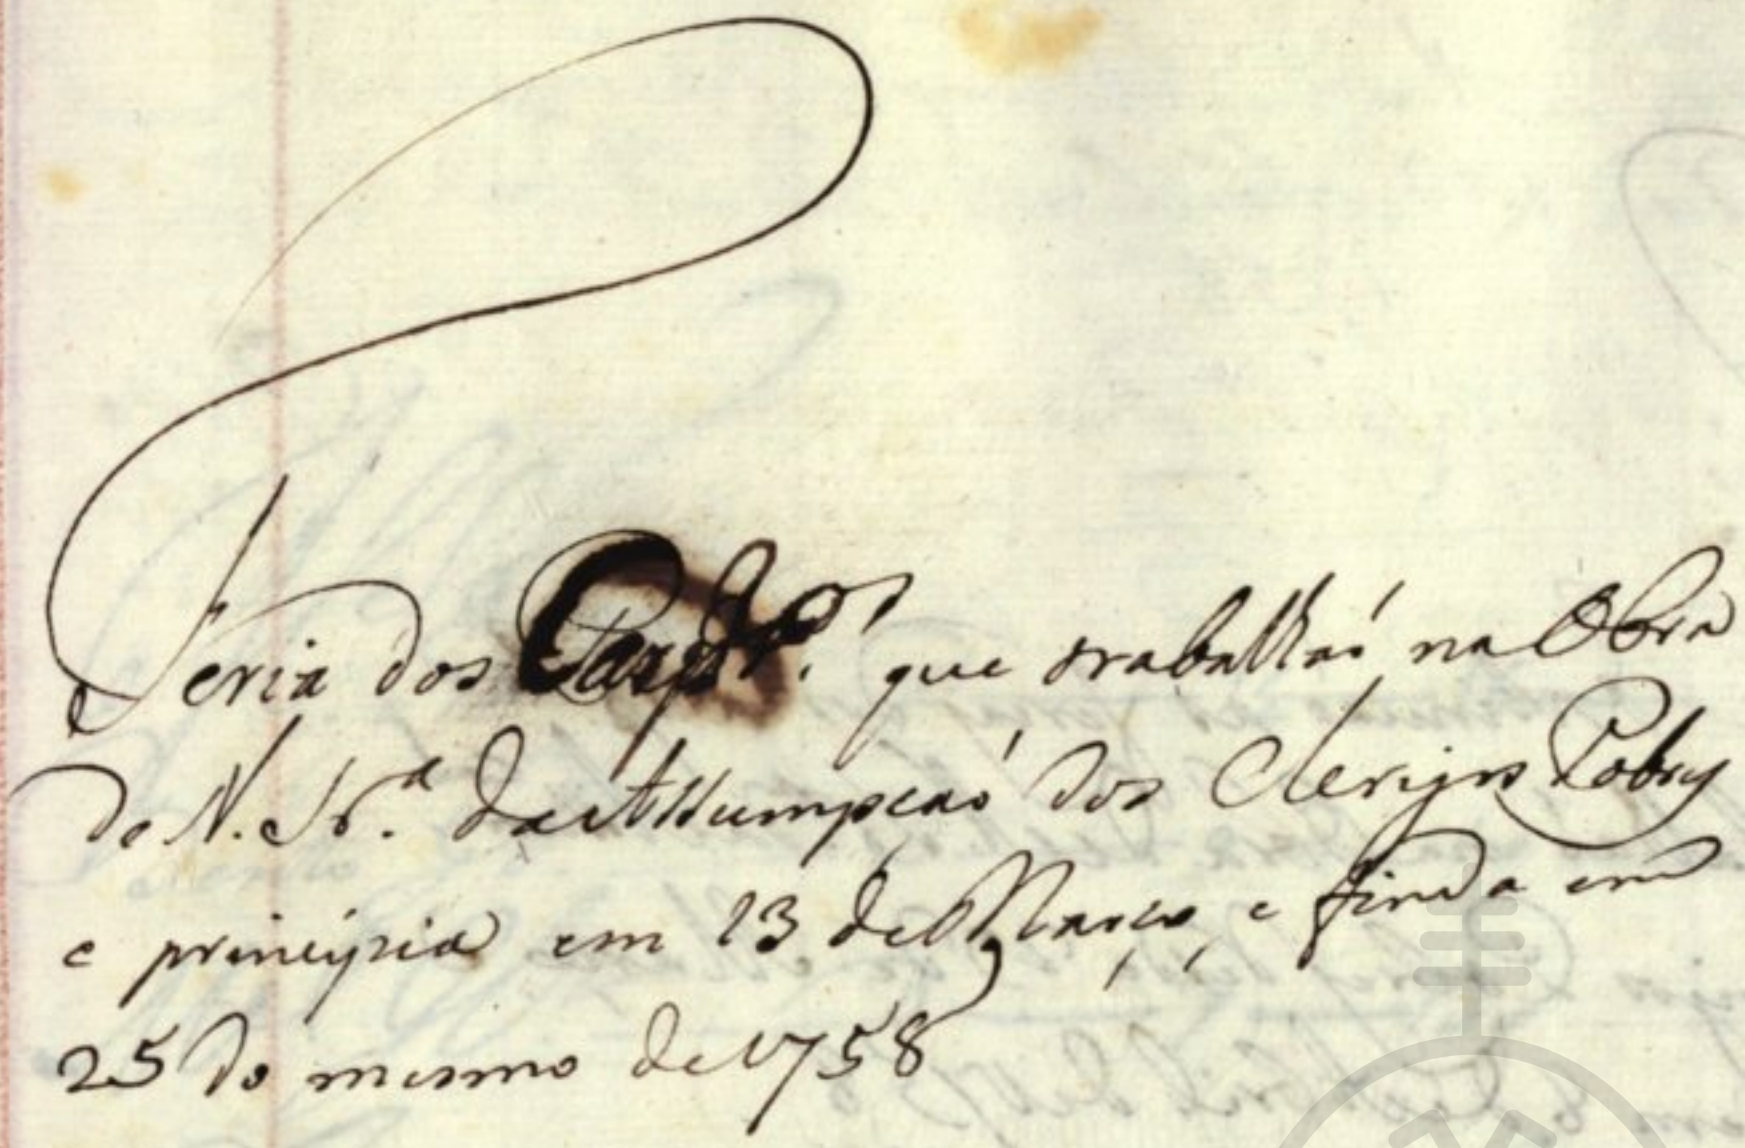 Feria dos Carptros. que trabalhaó na Obra
de N. Sr.ª da Assumpcaó dos Clerigos Pobres
e principia em 13 de Março, e finda em
25 do mesmo de 1758